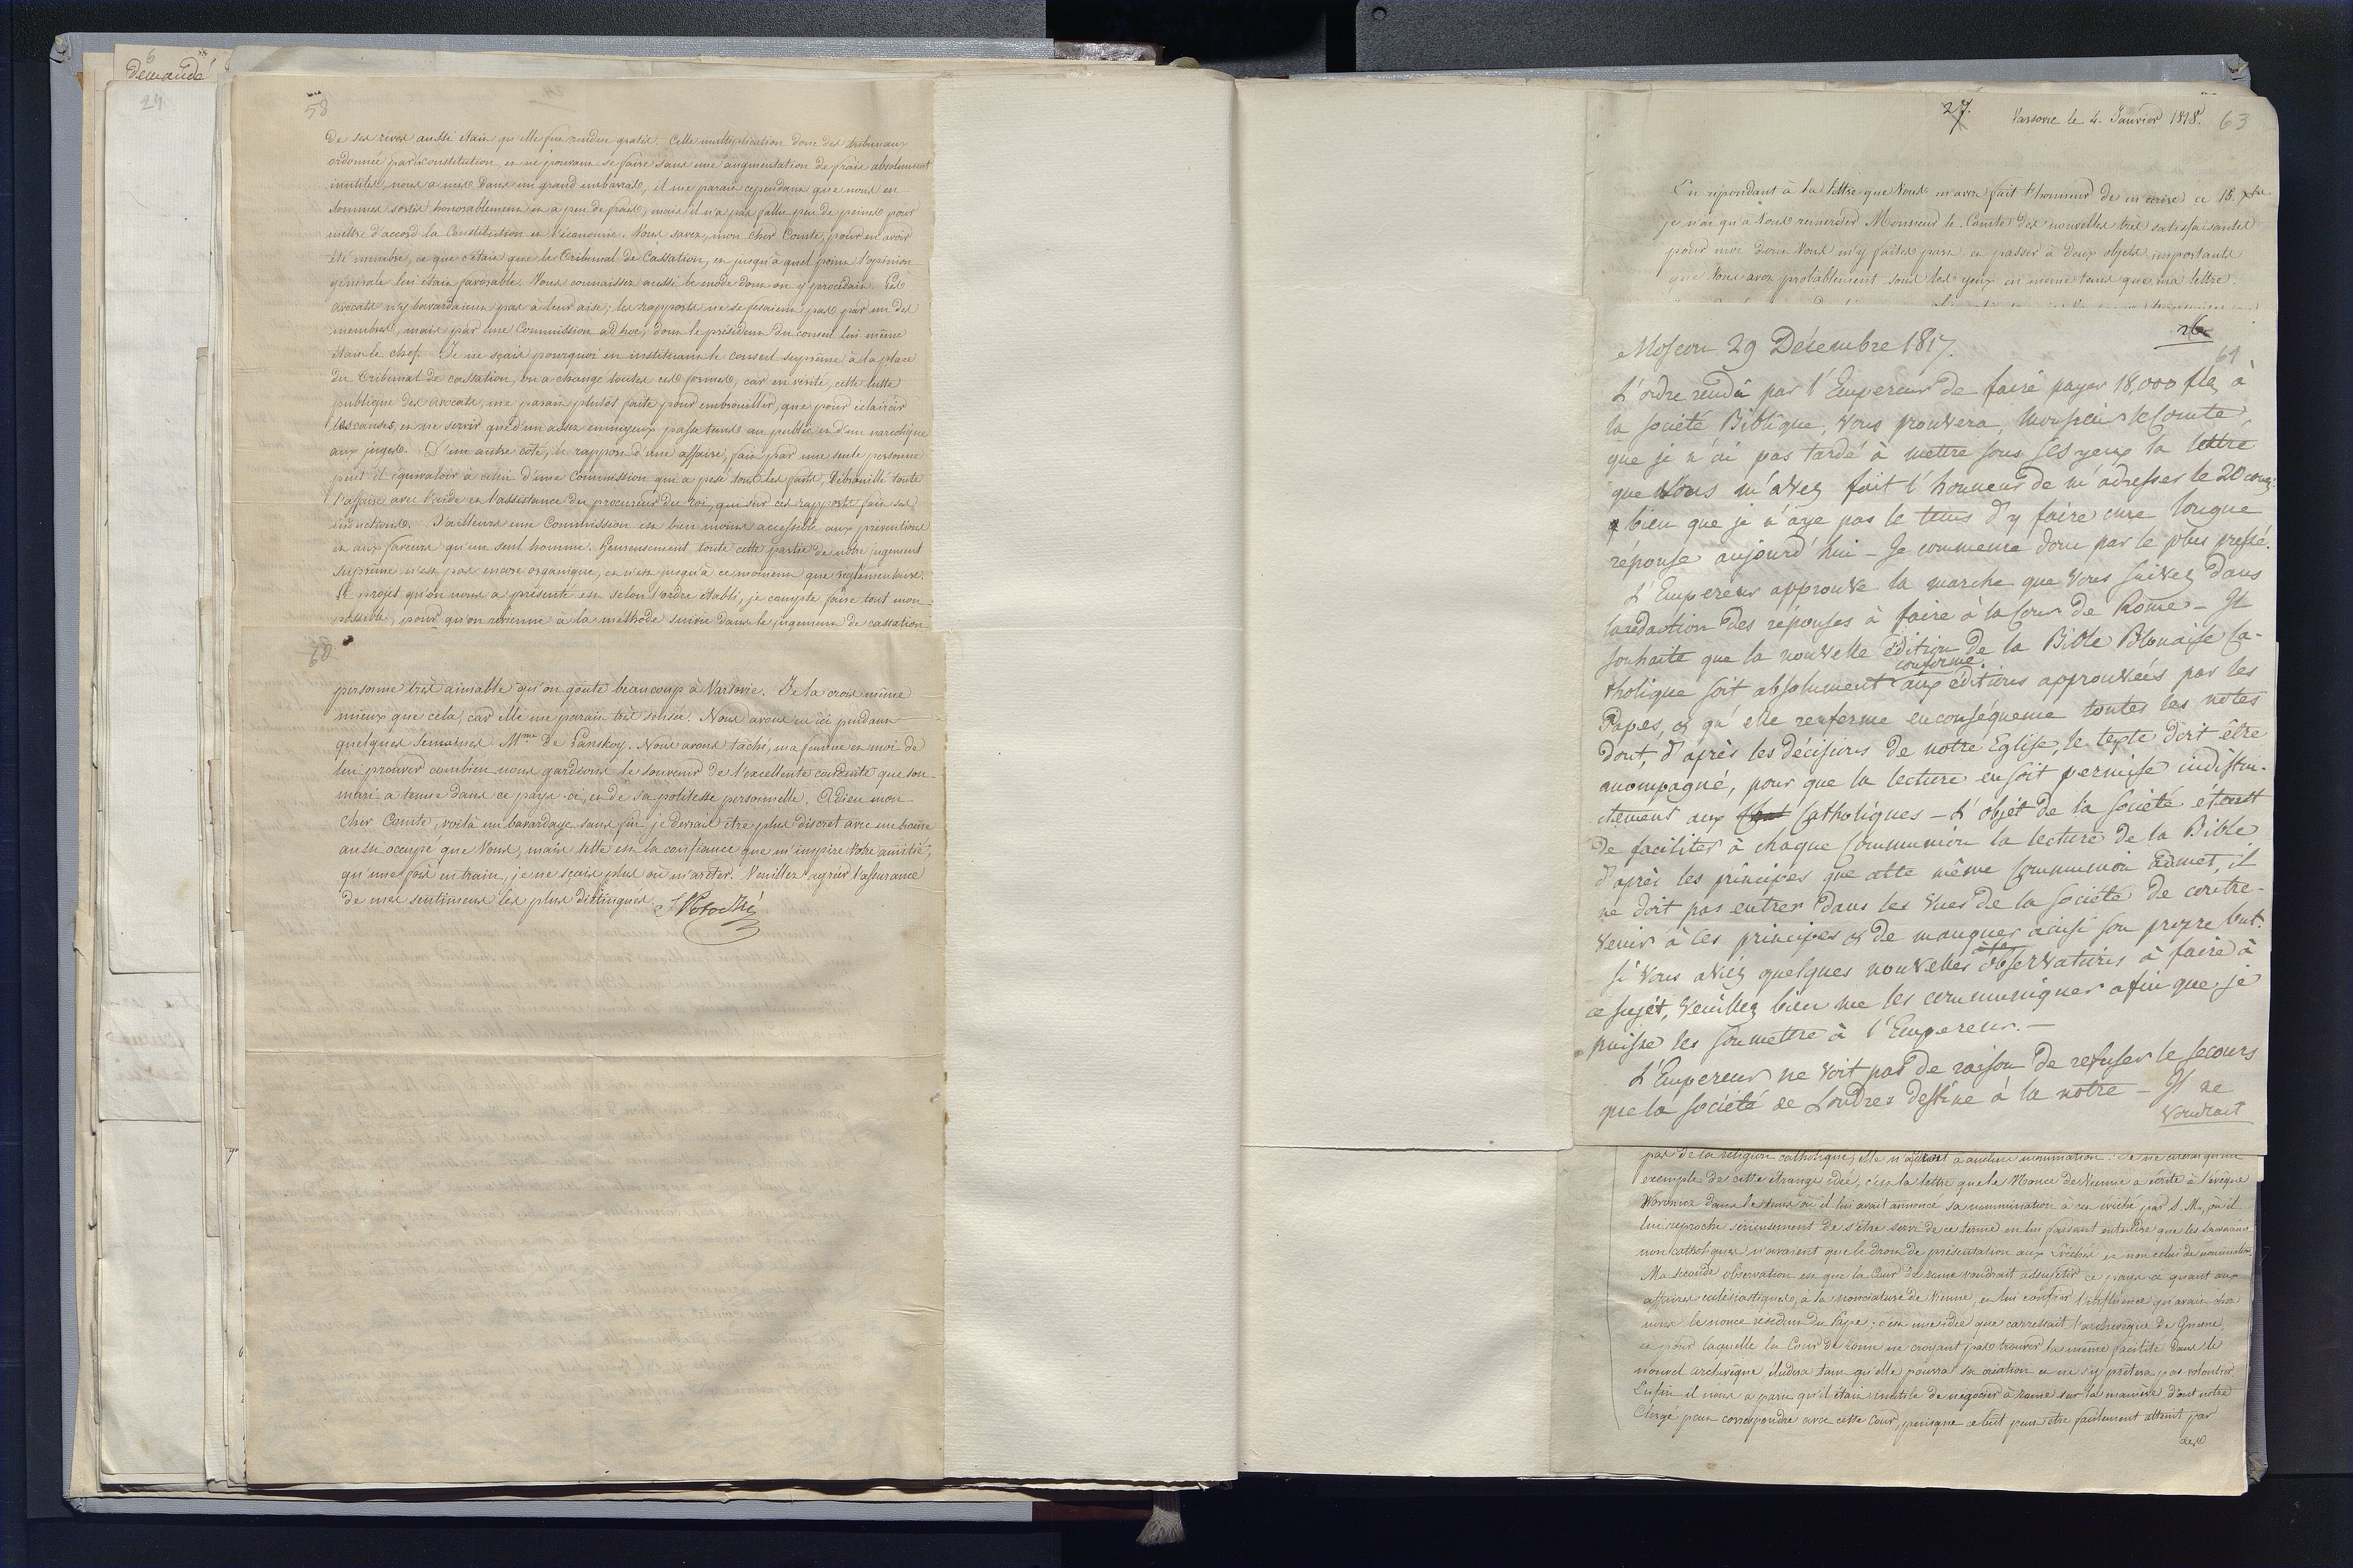 demandé
29
58
de ses rives aussi était qu'elle fut rendue gratis. Cette multiplication donc des tribunaux
ordonnée par la constitution, et ne pouvant se faire sans une augmentation de frais absolument
inutiles, nous a mis dans un grand embarras, il me parait cependant que nous en
sommes sortis honorablement et à peu de frais, mais il n'a pas fallu peu de peines pour
mettre d'accord la Constitution et l'économie. Vous savez, mon cher Comte, pour en avoir
été membre, ce que c'était que le Tribunal de Cassation, et jusqu'à quel point l'opinion
générale lui était favorable. Vous connaissez aussi le mode dont on y procédait. Les
avocats n'y bavardaient pas à leur aise; les rapports ne se fesaient pas par un des
membres, mais par une Commission ad hoc, dont le président du conseil lui même
était le chef. Je ne sçais pourquoi en instituant le conseil suprême à la place
du Tribunal de cassation, on a changé toutes ces formes, car en verité, cette lutte
publique des avocats, me parait plutôt faite pour embrouiller, que pour éclaircir
les causes, et ne servir que d'un assez ennuyeux passe tems au public et d'un narcotique
aux juges. D'un autre côté, le rapport d'une affaire, fait par une seule personne
peut il équivaloir à celui d'une Commission qui a pesé tous les faits, débrouillé toute
l'affaire avec l'aide et l'assistance du procureur du roi, qui sur ces rapports fait ses
inductions. D'ailleurs une Commission est bien moins accessible aux préventions
et aux faveurs qu'un seul homme. Heureusement toute cette partie de notre jugement
suprême n'est pas encore organique, et n'est jusqu'à ce moment que réglementaire.
Le projet qu'on nous a présenté est selon l'ordre établi, je compte faire tout mon
possible, pour qu'on revienne à la méthode suivie dans le jugement de cassation
60
personne très aimable qu'on goute beaucoup à Varsovie. Je la crois même
mieux que cela, car elle me parait très sensée. Nous avons eu ici pendant
quelques semaines Mme de Lanskoy. Nous avons tâché, ma femme et moi de
lui prouver combien nous gardions le souvenir de l'excellente conduite que son
mari a tenue dans ce pays-ci, et de sa politesse personnelle. Adieu mon
cher Comte, voilà un bavardage sans fin, je devrais être plus discret avec un homme
aussi occupé que Vous, mais telle est la confiance que m'inspire Votre amitié,
qu'une fois en train, je ne sçais plus où m'arrêter. Veuillez agréer l'assurance
de mes sentimens les plus distingués. S Potocki
27. Varsovie le 4. Janvier 1818. 63
En répondant à la lettre que Vous m'avez fait l'honneur de m'écrire ce 15. Xbre
je n'ai qu'à Vous remercier Monsieur le Comte des nouvelles très satisfaisantes
pour moi dont Vous m'y faites part, et passer à deux objets importants
que Vous avez probablement sous les yeux en même tems que ma lettre.
26
61
Moscou 29 Décembre 1817.
L'ordre rendu par l'Empereur de faire payer 18,000 flz à
la société Biblique, Vous prouvera, Monsieur le Comte,
que je n'ai pas tardé à mettre sous ses yeux la lettre
que Vous m'avez fait l'honneur de m'adresser le 20 cour:
bien que je n'aye pas le tems d'y faire une longue
réponse aujourd'hui - Je commence donc par le plus pressé.
L'Empereur approuve la marche que Vous suivez dans
la rédaction des réponses à faire à la Cour de Rome - Il
souhaite que la nouvelle édition de la Bible Polonaise Ca-
tholique soit absolument conforme aux éditions approuvées par les
Papes, & qu'elle renferme en conséquence toutes les notes
dont, d'après les décisions de notre Eglise, le texte doit être
accompagné, pour que la lecture en soit permise indistin-
ctement aux Catholiques - L'objet de la société étant
de faciliter à chaque Communion la lecture de la Bible
d'après les principes que cette même Communion admet, il
ne doit pas entrer dans les vues de la société de contre-
venir à ces principes & de manquer ainsi son propre but.
Si Vous aviez quelques nouvelles observations à faire à
ce sujet, veuillez bien me les communiquer afin que je
puisse les soumettre à l'Empereur. -
L'Empereur ne voit pas de raison de refuser le secours
que la société de Londres destine à la notre - Il ne
voudrait
pas de la religion catholique, elle n'admet à aucune nommination. Je ne citerai qu'un
exemple de cette étrange idée, c'est la lettre que le Nonce de Vienne a écrite à l'évêque
Woronicz dans le tems où il lui avait annoncé sa nommination à cet évêché par S. M., où il
lui reproche sérieusement de s'être servi de ce terme en lui faisant entendre que les souverains
non catholiques n'avaient que le droit de présentation aux Evêchés et non celui de nommination.
Ma seconde observation est que la Cour de Rome voudrait assujétir ce pays-ci quant aux
affaires eclésiastiques, à la nonciature de Vienne, et lui confier l'influence qu'avait chez
nous le nonce résident du Pape; c'est une idée que carressait l'archevêque de Gnesne,
et pour laquelle la Cour de Rome ne croyant pas trouver la même facilité dans le
nouvel archevêque éludera tant qu'elle pourra sa création et ne s'y prêtera pas volontiers.
Enfin il nous a paru qu'il était inutile de négocier à Rome sur la manière dont notre
Clergé peut correspondre avec cette Cour, puisque ce but peut être facilement atteint par
des